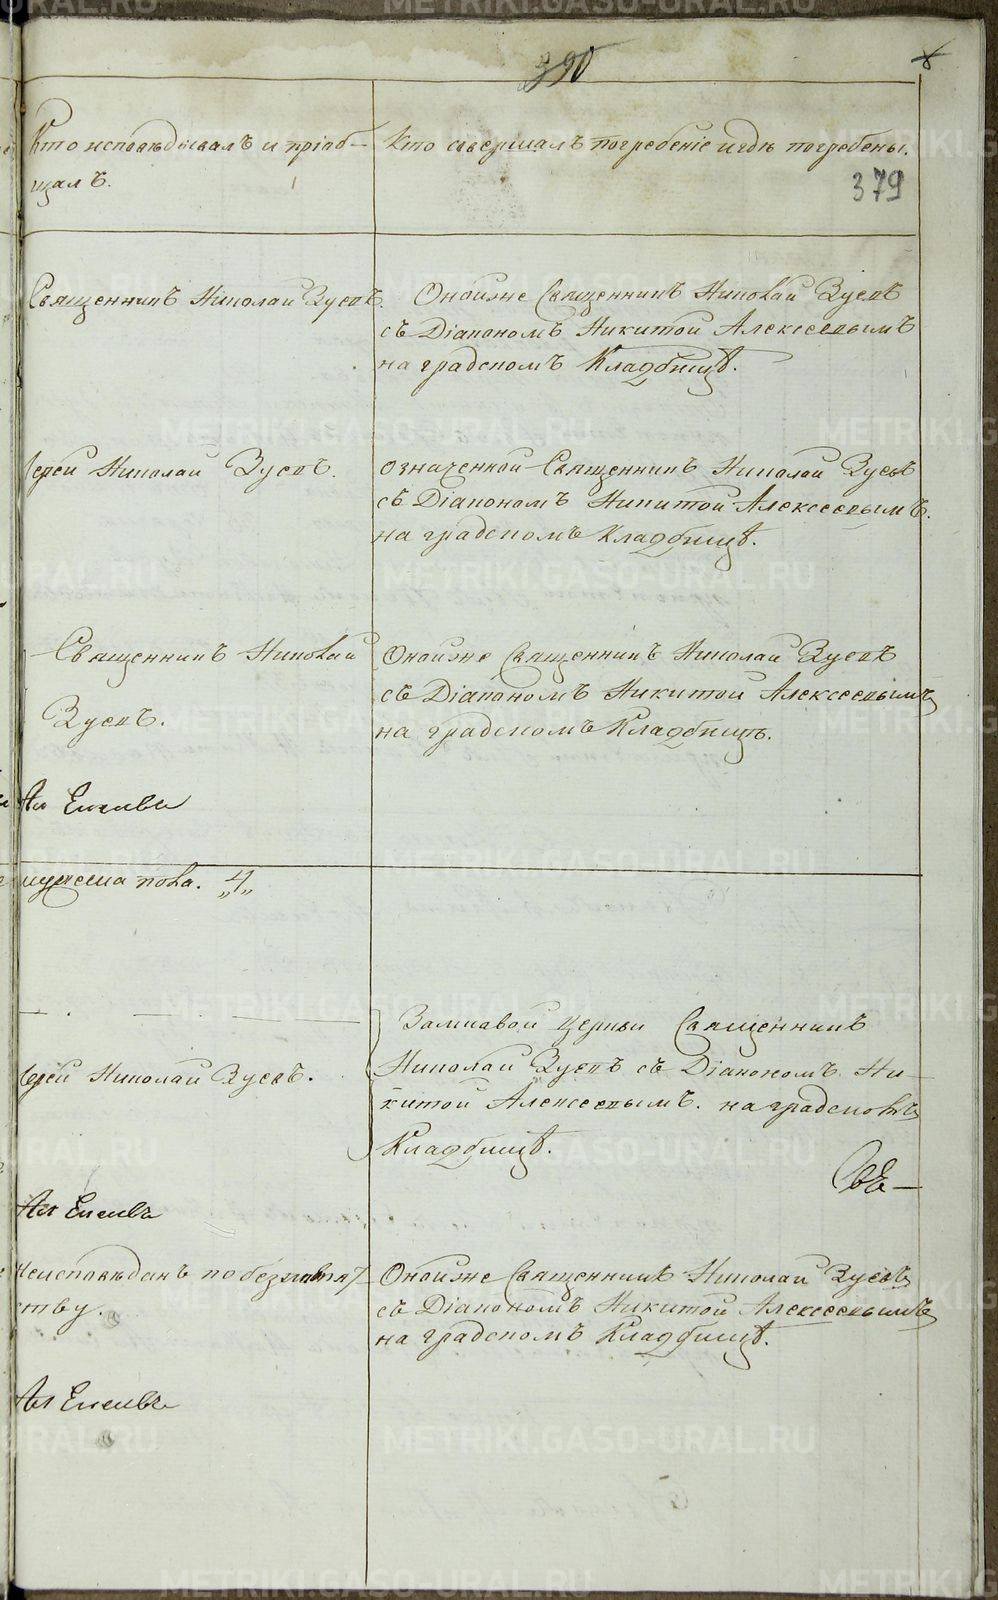 390
Кто исповѣдывалъ и пріоб-
щалъ.
Кто совершалъ погребеніе и гдѣ погребены.
379
Священникъ Николай Зуевъ.
Онойже Священникъ Николай Зуевъ
съ Діакономъ Никитой Алексеевымъ
на градскомъ Кладбищѣ.
Іерей Николай Зуевъ.
Означенной Священникъ Николай Зуевъ
съ Діакономъ Никитой Алексеевымъ.
на градскомъ Кладбищѣ.
Священникъ Николай
Зуевъ.
Онойже Священникъ Николай Зуевъ
съ Діакономъ Никитой Алексеевымъ
на градскомъ Кладбищѣ.
мужеска пола. „4„
Іерей Николай Зуевъ.
Священникъ
Николай Зуевъ съ Діакономъ Ни-
китой Алексеевымъ. на градскомъ
Кладбищѣ.
Неисповѣданъ по
ству.
Онойже Священникъ Николай Зуевъ
съ Діакономъ Никитой Алексеевымъ
на градскомъ Кладбищѣ.
METRIKI.GASO-URAL.RU